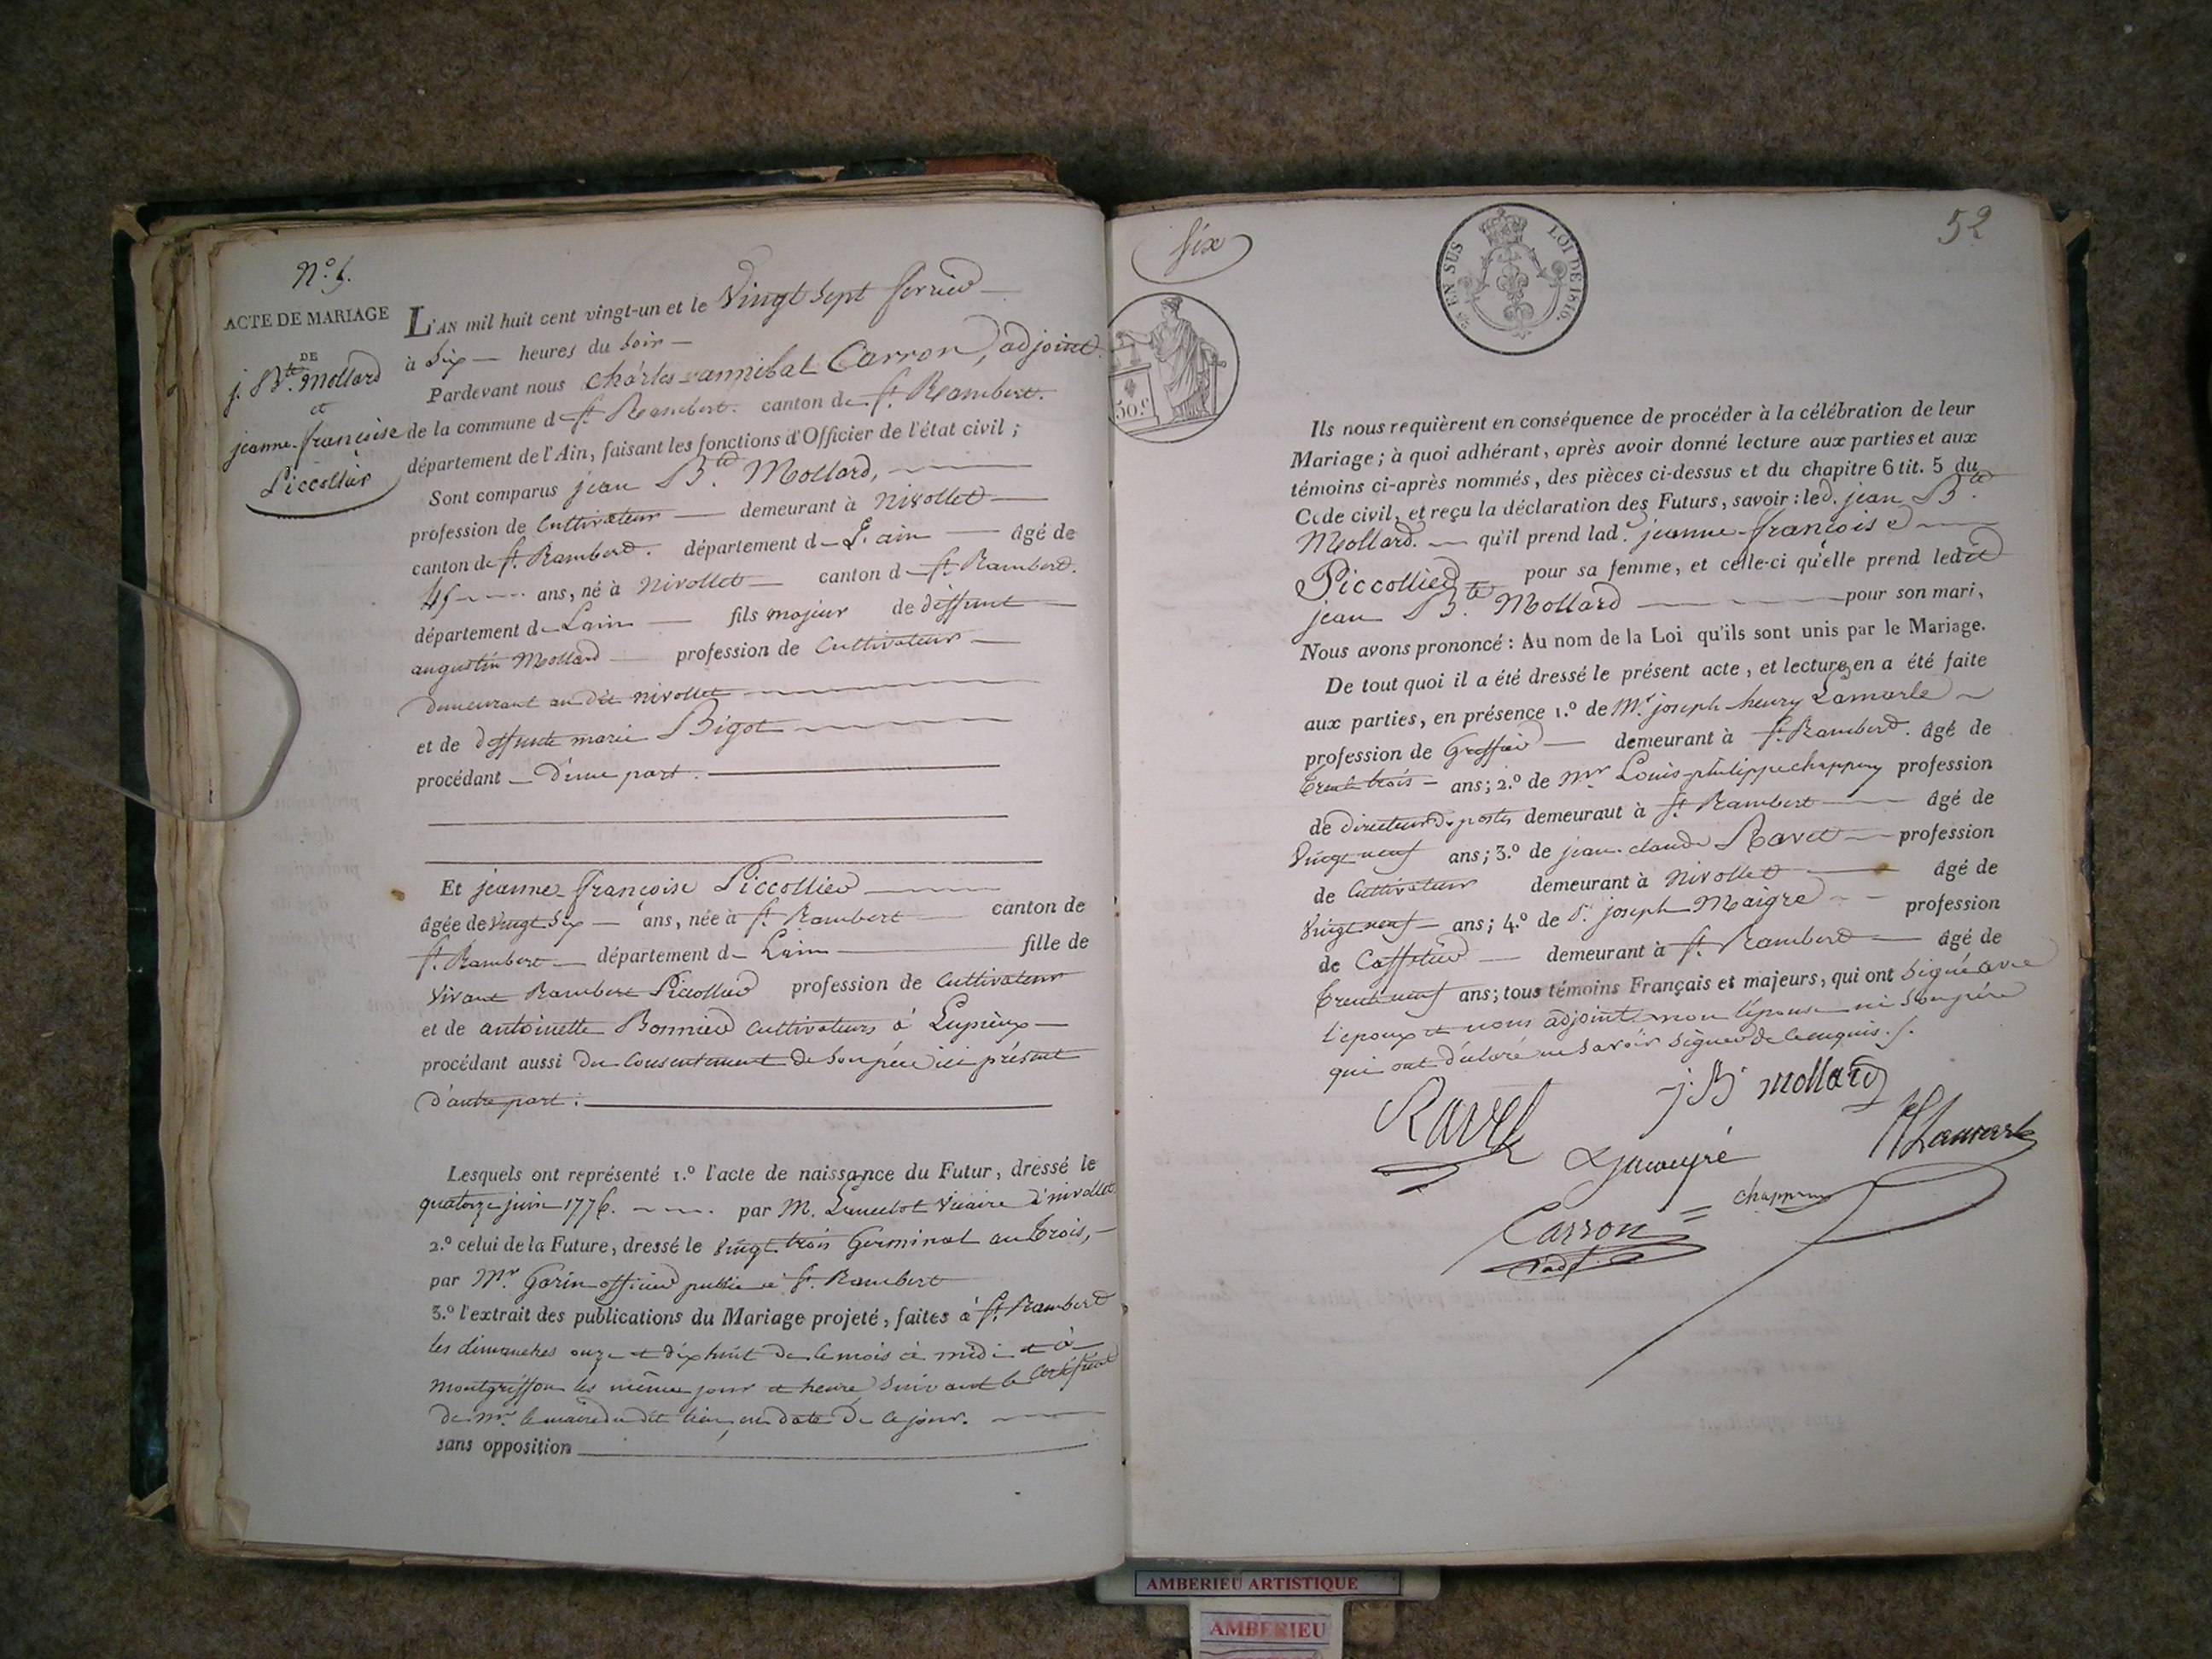 N.º 5.
ACTE DE MARIAGE
DE
j. Bte. Mollard
et
jeanne-françoise
Piccollier
L'AN mil huit cent vingt-un et le Vingt Sept fevrier
à Six heures du Soir
Pardevant nous Charles annibal Carron, adjoint
de la commune de St. Rambert. canton de St. Rambert.
département de l'Ain, faisant les fonctions d'Officier de l'état civil ;
Sont comparus jean Bte. Mollard,
profession de Cultivateur demeurant à Nivollet
canton de St. Rambert. département de L'ain âgé de
45 ans, né à Nivollet canton de St. Rambert.
département de Lain fils majeur de deffunt
augustin Mollard profession de Cultivateur
demeurant au dit nivollet
et de deffunte marie Bigot
procédant d'une part.
Et jeanne-françoise Piccollier
âgée de vingt Six ans, née à St. Rambert canton de
St. Rambert département de Lain fille de
vivant Rambert Piccollier profession de Cultivateur
et de antoinette Bonnier Cultivateurs à Lupieux
procédant aussi du Consentement de Son père ici présent
d'autre part :
Lesquels ont représenté 1.º l'acte de naissance du Futur, dressé le
quatorze juin 1776. par M. Vicaire d'nivollet
2.º celui de la Future, dressé le vingt trois Germinal an trois,
par Mr. Garin officier public à St. Rambert
3.º l'extrait des publications du Mariage projeté, faites à St. Rambert
les dimanches onze et dix huit de ce mois à midi et à
Montgriffon les même jour et heure Suivant le Certificat
de Mr. le maire du dit lieu, en date de ce jour.
sans opposition
Six
50.c
EN SUS LOI DE 1816.
52
Ils nous requièrent en conséquence de procéder à la célébration de leur
Mariage ; à quoi adhérant, après avoir donné lecture aux parties et aux
témoins ci-après nommés, des pièces ci-dessus et du chapitre 6 tit. 5 du
Code civil, et reçu la déclaration des Futurs, savoir : led. jean Bte.
Mollard. qu'il prend lad. jeanne-françoise
Piccollier pour sa femme, et celle-ci qu'elle prend ledit
jean Bte. Mollard pour son mari,
Nous avons prononcé : Au nom de la Loi qu'ils sont unis par le Mariage.
De tout quoi il a été dressé le présent acte, et lecture en a été faite
aux parties, en présence 1.º de Mr. joseph henry Lamarle
profession de Greffier demeurant à St. Rambert. âgé de
trente trois ans ; 2.º de Mr Louis-philippe chappuy profession
de directeur de postes demeurant à St. Rambert âgé de
Vingt neuf ans ; 3.º de jean-claude Ravet profession
de Cultivateur demeurant à nivollet âgé de
Vingt neuf ans ; 4.º de Sr. joseph Maigre profession
de Caffetier demeurant à St. Rambert âgé de
trente neuf ans ; tous témoins Français et majeurs, qui ont Signé avec
l'epoux et nous adjoint. non l'épouse ni Son père
qui ont déclaré ne Savoir Signer de ce enquis.
j. B. mollard
Ravet
Lamarle
chappuy
Carron
adj.
AMBERIEU ARTISTIQUE
AMBERIEU